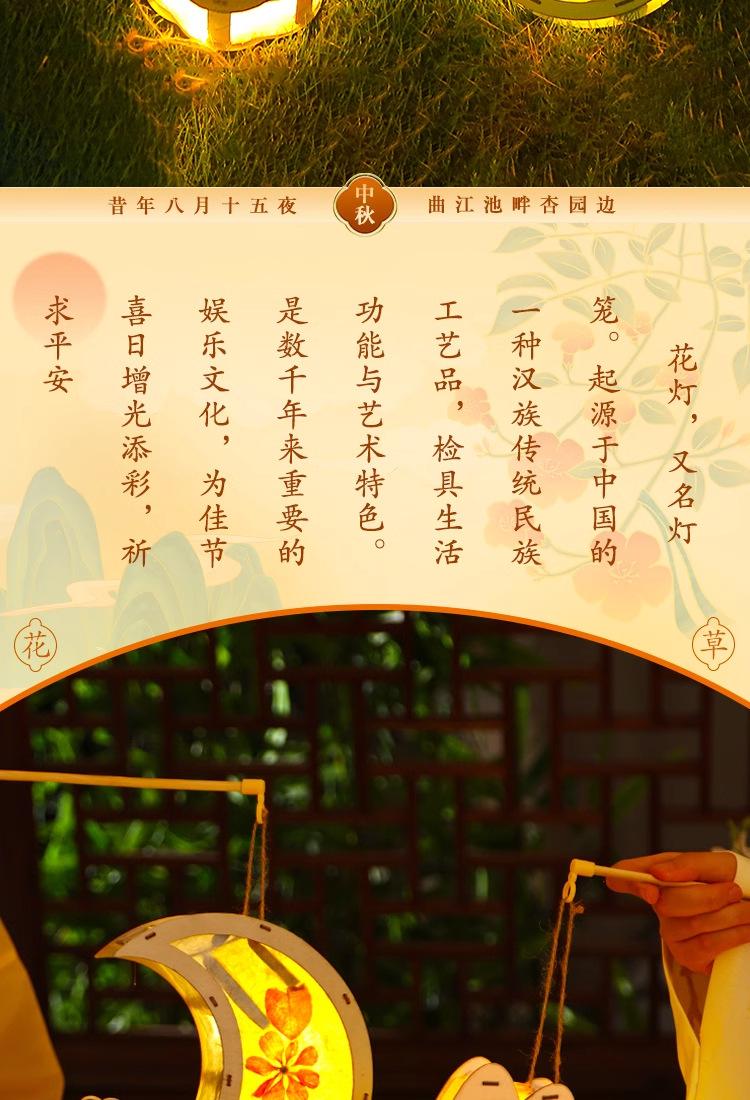 昔年八月十五夜
中秋
曲江池畔杏园边
花灯，又名灯
笼。起源于中国的
一种汉族传统民族
工艺品，检具生活
功能与艺术特色。
是数千年来重要的
娱乐文化，为佳节
喜日增光添彩，祈
求平安
花
草